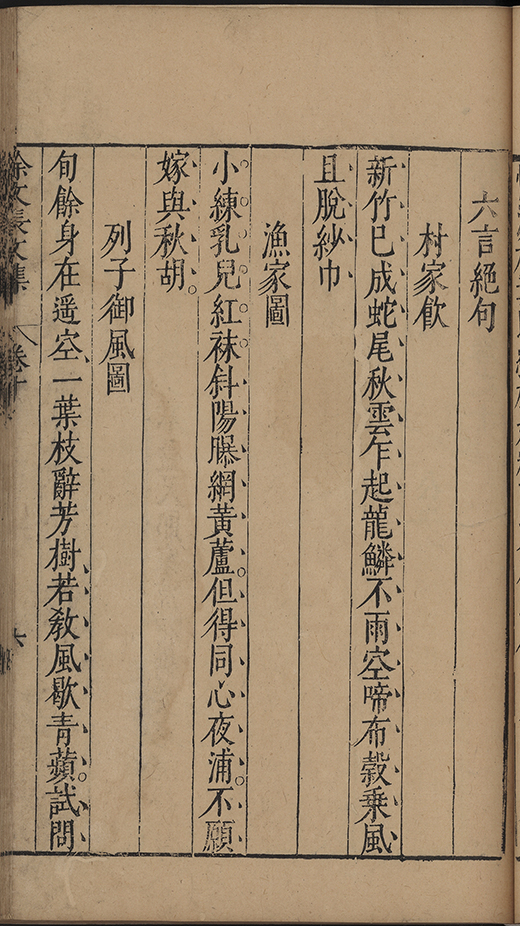 六言絕句
村家飲
新竹已成蛇尾秋雲乍起龍鱗不雨空啼布穀乗風
且脫紗巾
漁家圖
小練乳兒紅袜斜陽曝網黃蘆但得同心夜浦不願
嫁與秋胡
列子御風圖
旬餘身在遥空一葉枝辭芳樹若教風歇青蘋試問
徐文長文集 卷十 六